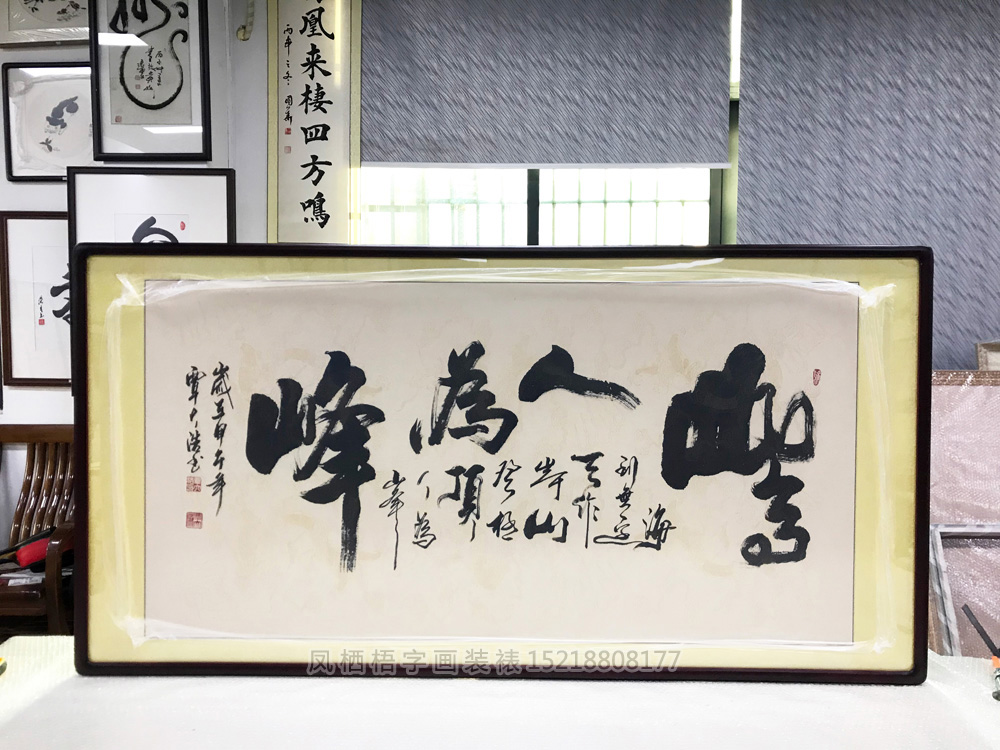 凰来棲四方鳴
丙申之冬
山高人為峰
海
到無邊
天作
岸山
登極
頂
人為
峯
歲在甲午年
凤栖梧字画装裱15218808177